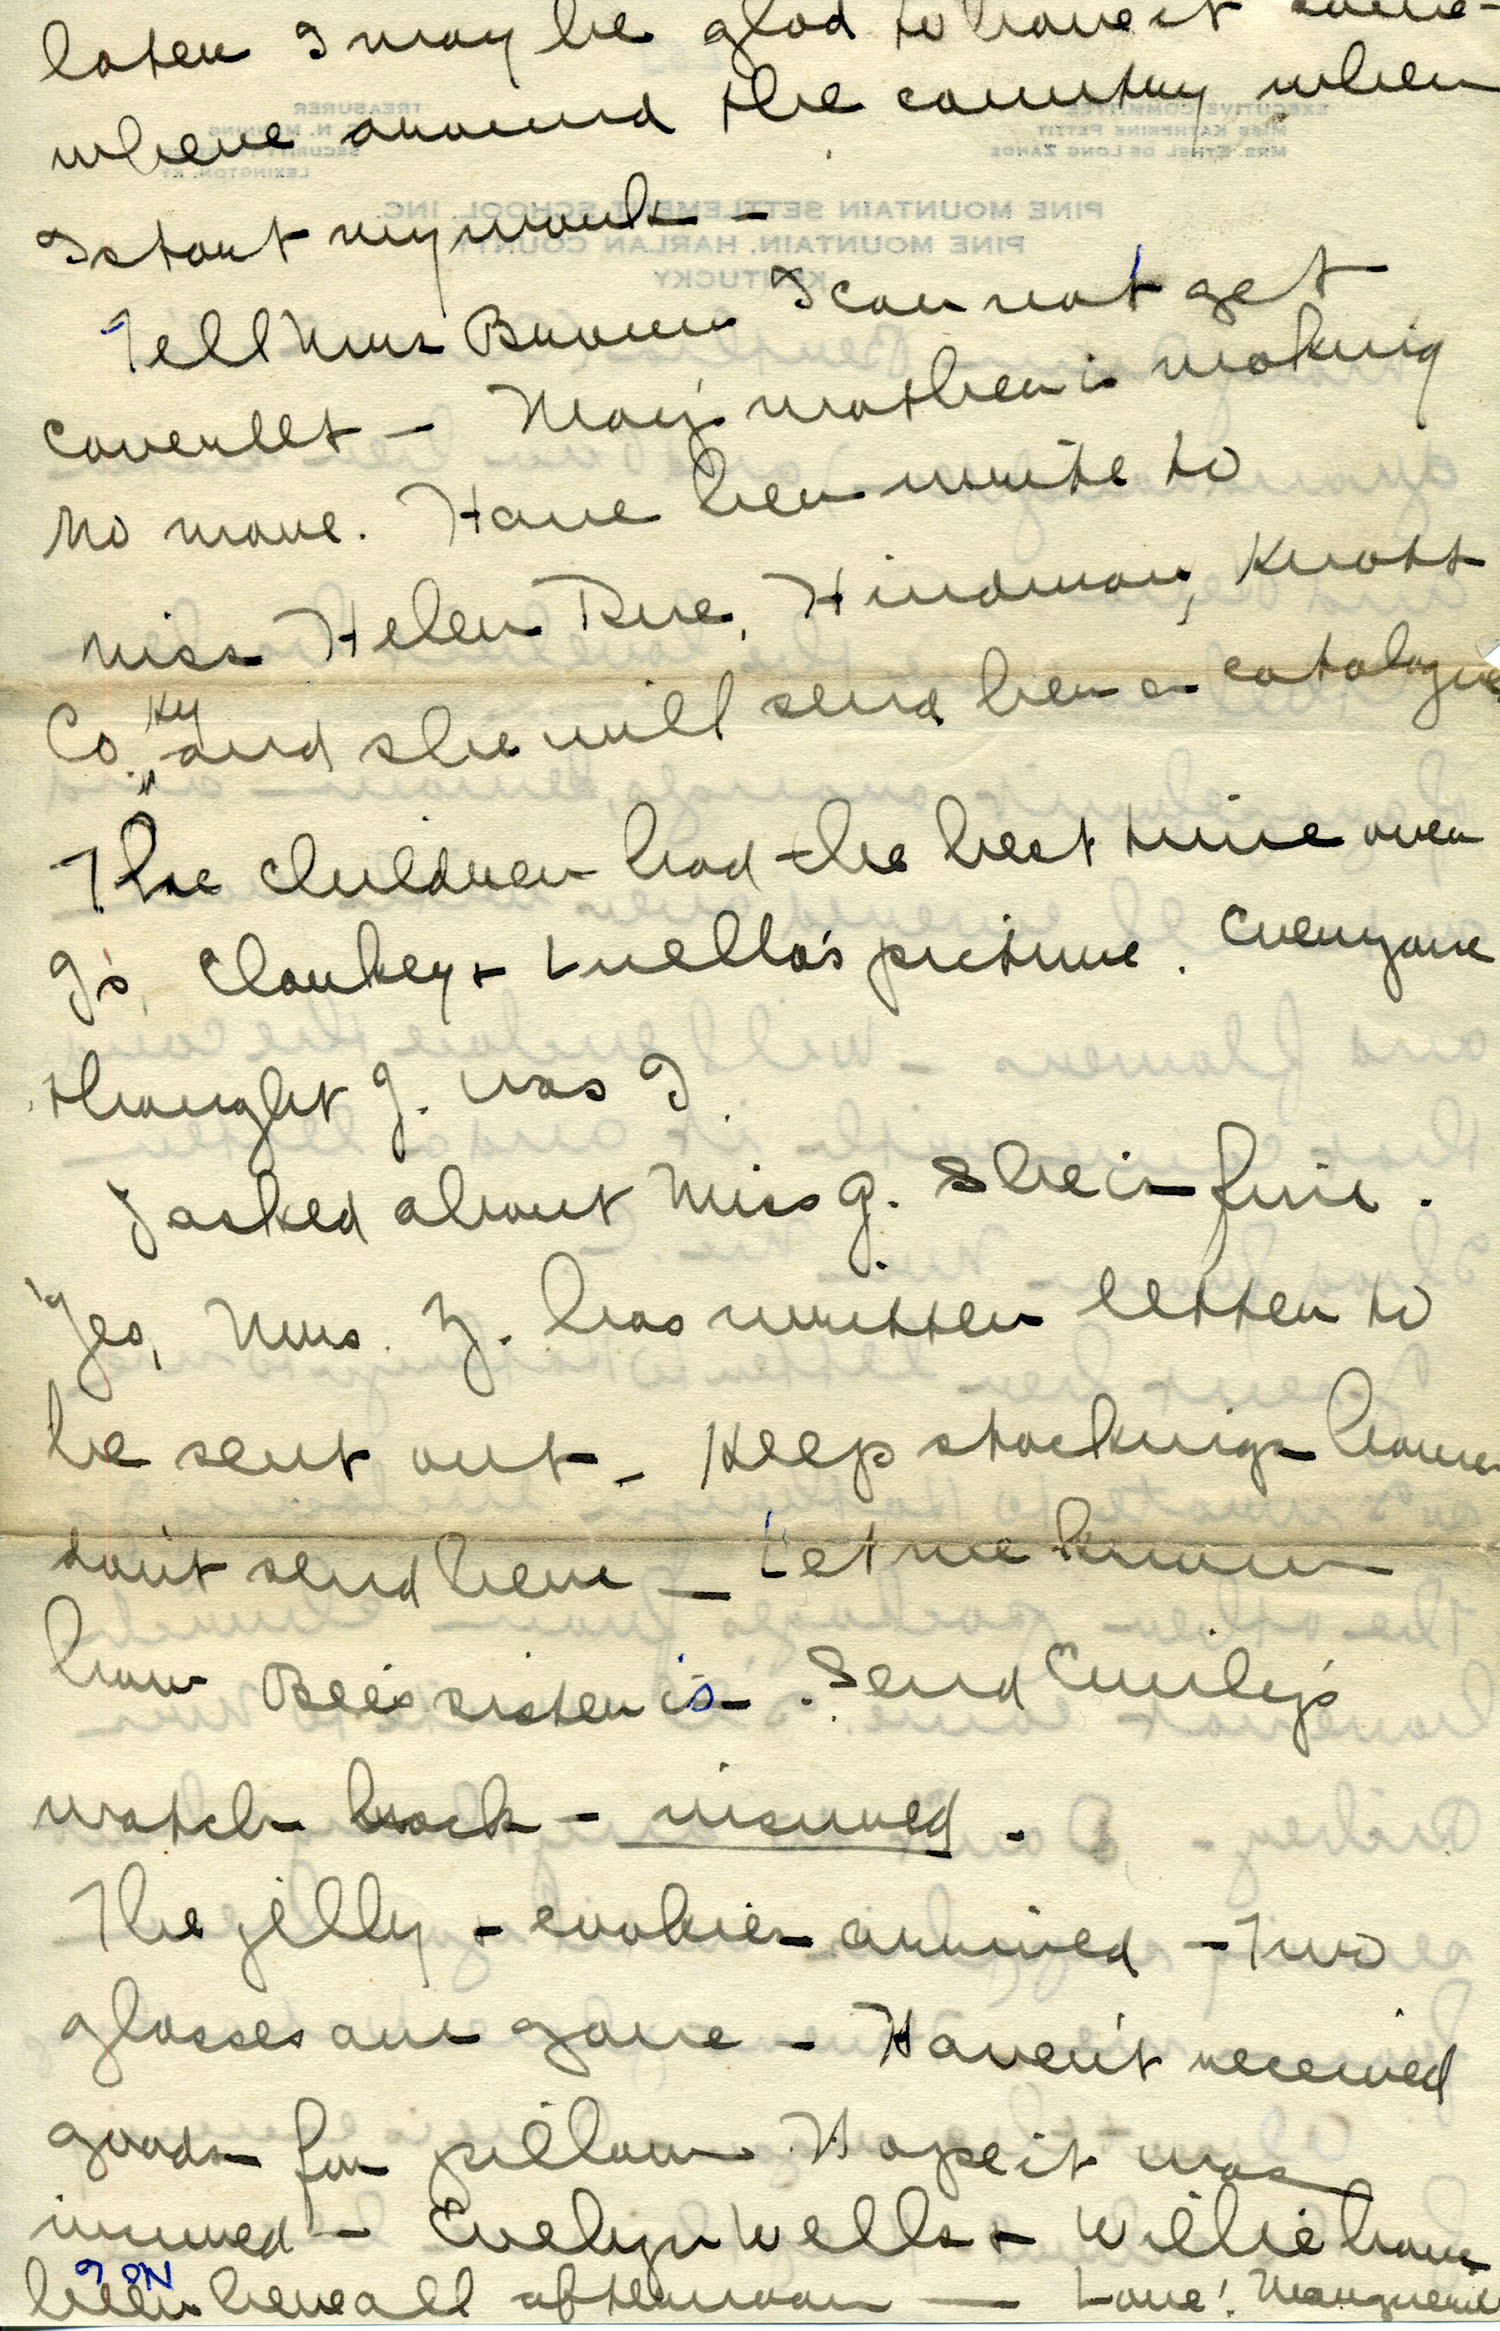 later I may be glad to have it some-
where around the country when
I start my work -
Tell Mrs Brown I can not get
coverlet - May's mother is making
no more. Have her write to
Miss Helen Rue, Hindman, Knott
Co. Ky and she will send her a catalogue
The children had the best time over
J's, Charkey + Luella's picture. Everyone
thought J. was I
J asked about Miss G. She is fine.
Yes, Mrs. Z. has written letter to
be sent out - Keep stockings home
don't send here - Let me know
how Bee's sister is - . Send Emily's
watch back - insured.
The jelly + cookies arrived - Two
glasses are gone - Haven't received
goods for pillow. Hope it was
insured - Evelyn Wells + Willie have
been here all afternoon - Love! Marguerite
EXECUTIVE COMMITTEE
MISS KATHERINE PETTIT
MRS. ETHEL DE LONG ZANDE
TREASURER
LEXINGTON, KY
PINE MOUNTAIN SETTLEMENT SCHOOL, INC.
PINE MOUNTAIN, HARLAN COUNTY
KENTUCKY